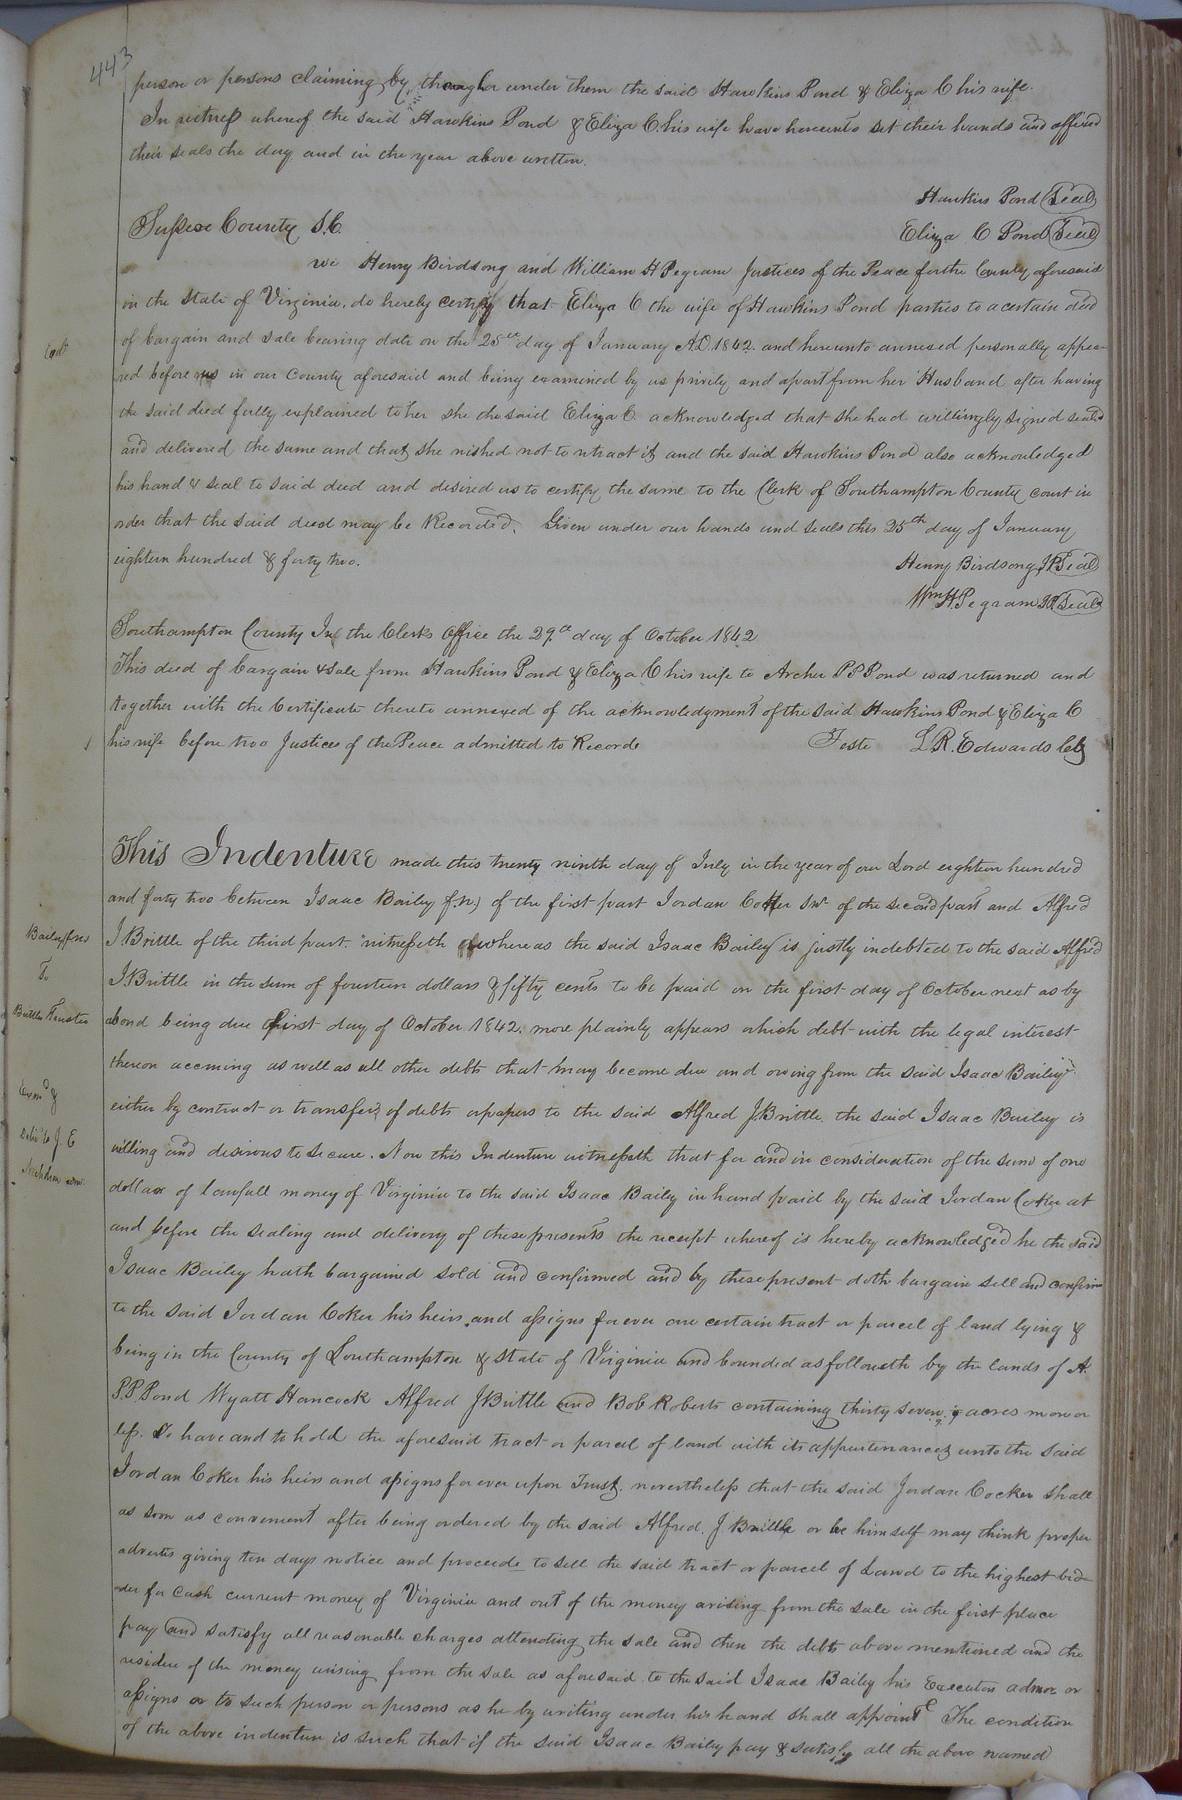 443
person or persons claiming by, through or under them the said Hawkins Pond & Eliza C his wife.
In witness whereof the said Hawkins Pond & Eliza C. his wife have hereunto set their hands and affixed
their seals the day and in the year above written.
Hawkins Pond Seal
Eliza C Pond Seal
Sussex County S.C.
we Henry Birdsong and William H Pegram Justices of the Peace for the County aforesaid
in the State of Virginia, do hereby certify that Eliza C the wife of Hawkins Pond parties to a certain deed
of bargain and sale bearing date on the 25th day of January A.D. 1842. and hereunto annexed personally appea-
red before us in our County aforesaid and being examined by us privily and apart from her Husband after having
the said deed fully explained to her she the said Eliza C. acknowledged that she had willingly signed seald
and delivered the same and that she wished not to retract it and the said Hawkins Pond also acknowledged
his hand & seal to said deed and desired us to certify the same to the Clerk of Southampton County court in
order that the said deed may be Recorded. Given under our hands and seals this 25th day of January
eighteen hundred & forty two.
Henny Birdsong JP Seal
Wm H. Pegram JP Seal
Southampton County In the Clerks Office the 29th day of October 1842
This deed of bargain & sale from Hawkins Pond & Eliza C his wife to Archer P P Pond was returned and
together with the Certificate thereto annexed of the acknowledgment of the said Hawkins Pond & Eliza C
his wife before two Justices of the Peace admitted to Record
Teste L.R. Edwards Clk
This Indenture made this twenty ninth day of July in the year of our Lord eighteen hundred
and forty two between Isaac Bailey f.n) of the first part Jordan Coker Snr of the second part and Alfred
J Brittle of the third part. witnesseth whereas the said Isaac Bailey is justly indebted to the said Alfred
J. Brittle in the sum of fourteen dollars & fifty cents to be paid on the first day of October next as by
bond being due first day of October 1842. more plainly appears which debt with the legal interest
thereon accruing as well as all other debts that may become due and owing from the said Isaac Bailey
either by contract or transfer, of debts or papers to the said Alfred J. Brittle, the said Isaac Bailey is
willing and desirous to secure. Now this Indenture witnesseth that for and in consideration of the sum of one
dollar of lawfull money of Virginia to the said Isaac Bailey in hand paid by the said Jordan Coker at
and before the sealing and delivery of these presents the receipt whereof is hereby acknowledged he the said
Isaac Bailey hath bargained sold and confirmed and by these present doth bargain sell and confirm
to the said Jordan Coker his heirs and assigns forever one certain tract or parcel of land lying &
being in the County of Southampton & State of Virginia and bounded as followeth by the lands of A.
P.P. Pond Wyatt Hancock Alfred J Brittle and Bob Roberts containing thirty seven acres more or
less. To have and to hold the aforesaid tract or parcel of land with its appurtenances unto the said
Jordan Coker his heirs and assigns forever upon Trust, nevertheless that the said Jordan Cocker shall
as soon as convenient after being ordered by the said Alfred. J Brittle or he himself may think proper
advertis giving ten days notice and proceede to sell the said tract or parcel of Land to the highest bid-
der for Cash current money of Virginia and out of the money arising from the sale in the first place
pay and satisfy all reasonable charges attending the sale and then the debts above mentioned and the
residue of the money arising from the sale as aforesaid to the said Isaac Bailey his Executors admrs or
assigns or to such person or persons as he by writing under his hand shall appoint The condition
of the above indenture is such that if the said Isaac Bailey pay & satisfy all the above named
Bailey f.n.
To
Brittles Trustee
Exmd &
Deliv. to J. E